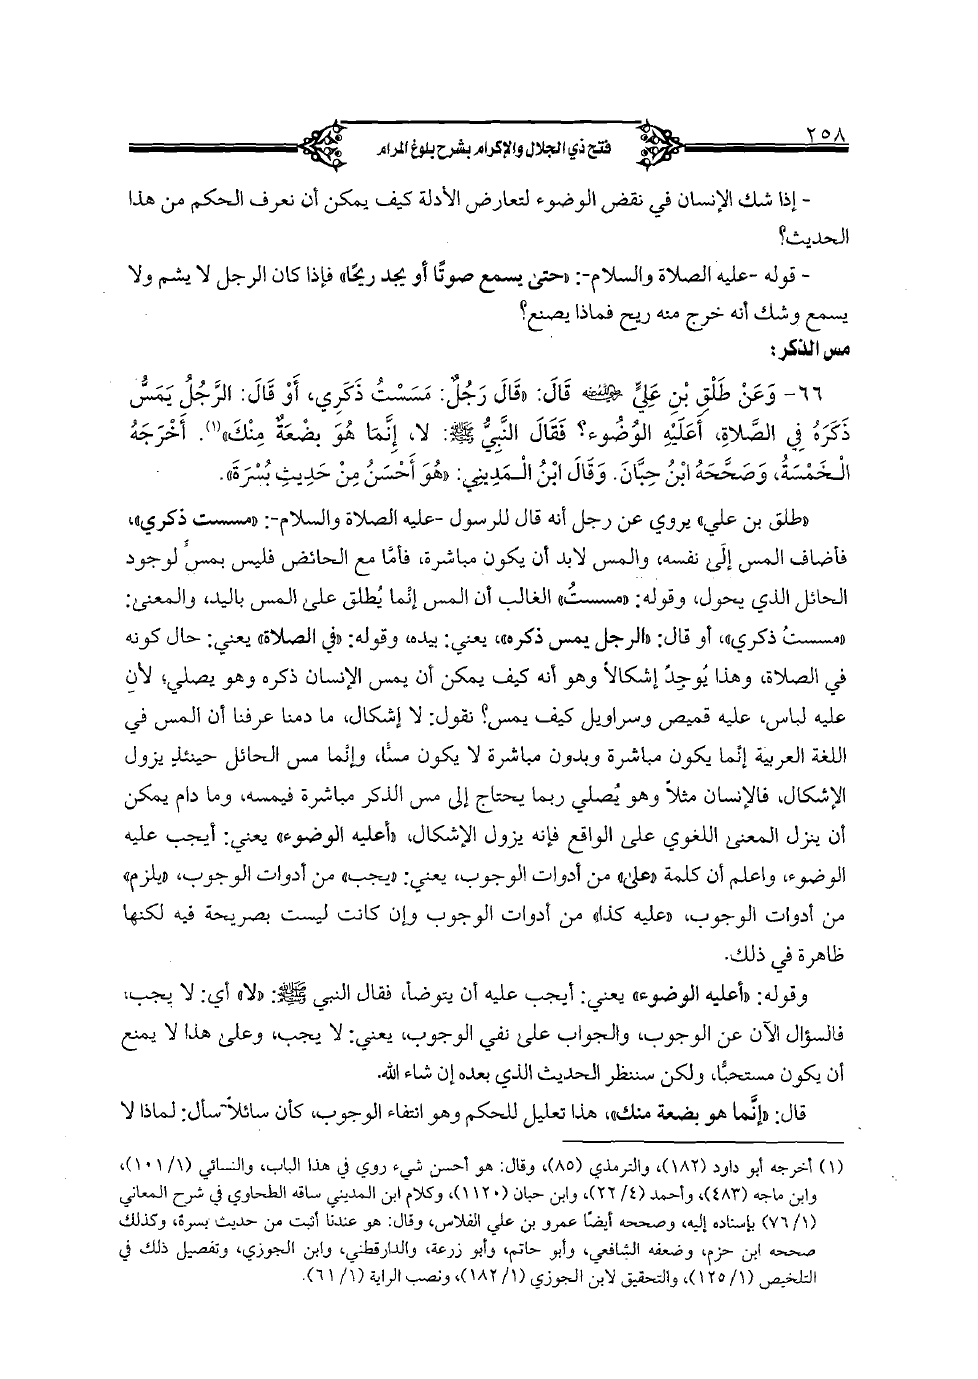 ٢٥٨
فتح ذي الجلال والإكرام بشرح بلوغ المرام
- إذا شك الإنسان في نقض الوضوء لتعارض الأدلة كيف يمكن أن نعرف الحكم من هذا
الحديث؟
- قوله -عليه الصلاة والسلام-: «حتى يسمع صوتًا أو يجد ريحًا» فإذا كان الرجل لا يشم ولا
يسمع وشك أنه خرج منه ريح فماذا يصنع؟
مس الذكر:
٦٦- وَعَنْ طَلْقِ بْنِ عَلِيٍّ رضي الله عنه قَالَ: «قَالَ رَجُلٌ: مَسَسْتُ ذَكَرِي، أَوْ قَالَ: الرَّجُلُ يَمَسُّ
ذَكَرَهُ فِي الصَّلَاةِ، أَعَلَيْهِ الوُضُوء؟ فَقَالَ النَّبِيُّ ﷺ: لا، إِنَّمَا هُوَ بِضْعَةٌ مِنْكَ»(١). أَخْرَجَهُ
الْخَمْسَةُ، وَصَحَّحَهُ ابْنُ حِبَّانَ. وَقَالَ ابْنُ الْمَدِينِي: «هُوَ أَحْسَنُ مِنْ حَدِيثِ بُسْرَةَ».
«طلق بن علي» يروي عن رجل أنه قال للرسول -عليه الصلاة والسلام-: «مسست ذكري»،
فأضاف المس إلَى نفسه، والمس لابد أن يكون مباشرة، فأمَّا مع الحائض فليس بمسٍّ لوجود
الحائل الذي يحول، وقوله: «مسستُ» الغالب أن المس إنَّما يُطلق على المس باليد، والمعنى:
«مسستُ ذكري»، أو قال: «الرجل يمس ذكره»، يعني: بيده، وقوله: «في الصلاة» يعني: حال كونه
في الصلاة، وهذا يُوجِدُ إشكالاً وهو أنه كيف يمكن أن يمس الإنسان ذكره وهو يصلي؛ لأن
عليه لباس، عليه قميص وسراويل كيف يمس؟ نقول: لا إشكال، ما دمنا عرفنا أن المس في
اللغة العربية إنَّما يكون مباشرة وبدون مباشرة لا يكون مسًّا، وإنَّما مس الحائل حينئذٍ يزول
الإشكال، فالإنسان مثلاً وهو يُصلي ربما يحتاج إلى مس الذكر مباشرة فيمسه، وما دام يمكن
أن ينزل المعنى اللغوي على الواقع فإنه يزول الإشكال، «أعليه الوضوء» يعني: أيجب عليه
الوضوء، واعلم أن كلمة «على» من أدوات الوجوب، يعني: «يجب» من أدوات الوجوب، «يلزم»
من أدوات الوجوب، «عليه كذا» من أدوات الوجوب وإن كانت ليست بصريحة فيه لكنها
ظاهرة في ذلك.
وقوله: «أعليه الوضوء» يعني: أيجب عليه أن يتوضأ، فقال النبي ﷺ: «لا» أي: لا يجب،
فالسؤال الآن عن الوجوب، والجواب على نفي الوجوب، يعني: لا يجب، وعلى هذا لا يمنع
أن يكون مستحبًّا، ولكن سننظر الحديث الذي بعده إن شاء الله.
قال: «إنَّما هو بضعة منك»، هذا تعليل للحكم وهو انتفاء الوجوب، كأن سائلاً سأل: لماذا لا
(١) أخرجه أبو داود (١٨٢)، والترمذي (٨٥)، وقال: هو أحسن شيء روي في هذا الباب، والنسائي (١/ ١٠١)،
وابن ماجه (٤٨٣)، وأحمد (٤/ ٢٢)، وابن حبان (١١٢٠)، وكلام ابن المديني ساقه الطحاوي في شرح المعاني
(١/ ٧٦) بإسناده إليه، وصححه أيضًا عمرو بن علي الفلاس، وقال: هو عندنا أثبت من حديث بسرة، وكذلك
صححه ابن حزم، وضعفه الشافعي، وأبو حاتم، وأبو زرعة، والدارقطني، وابن الجوزي، وتفصيل ذلك في
التلخيص (١/ ١٢٥)، والتحقيق لابن الجوزي (١/ ١٨٢)، ونصب الراية (١/ ٦١).